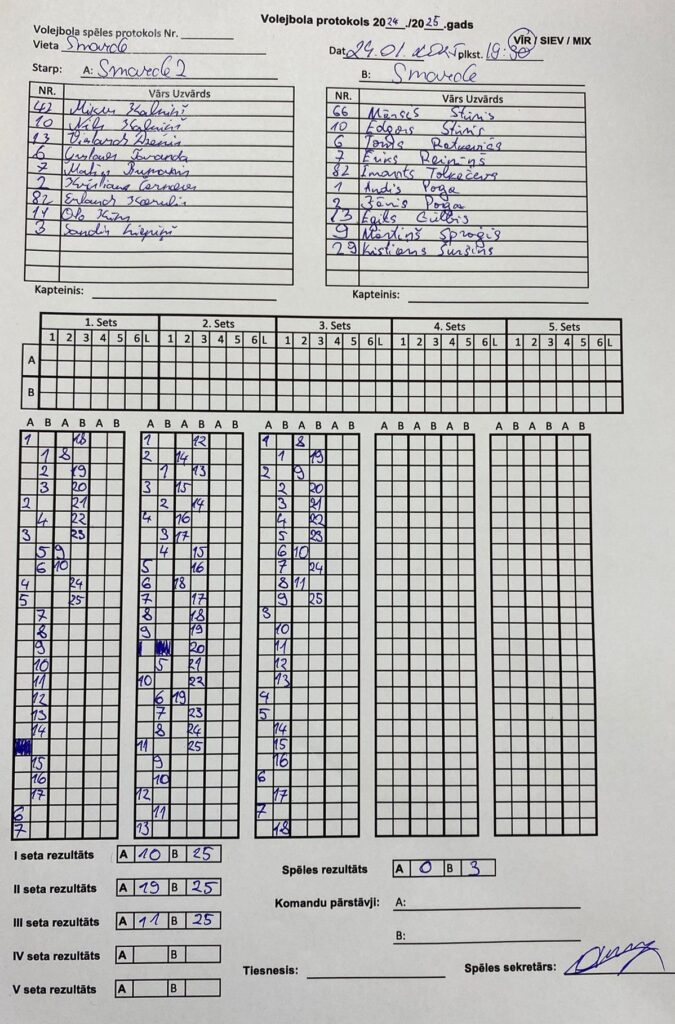 Volejbola protokols 2024./2025.gads
Volejbola spēles protokols Nr.
Vieta Smarde
Dat. 24.01.2025 plkst. 19:30
VĪR / SIEV / MIX
Starp: A: Smarde 2
B: Smarde
NR. Vārs Uzvārds
42 Mikus Kalniņš
10 Nils Kalniņš
13
6 Gustavs
7
2 Kristians
82 Erlands
11
3 Sandis Liepiņš
Kapteinis:
NR. Vārs Uzvārds
66 Stūris
10 Edgars Stūris
6 Toms
7 Ēriks Reipiņš
82 Imants
1 Andis Poga
2 Jānis Poga
13 Egils Gulbis
9 Mārtiņš Sproģis
29 Kistians
Kapteinis:
1. Sets 2. Sets 3. Sets 4. Sets 5. Sets
1 2 3 4 5 6 L 1 2 3 4 5 6 L 1 2 3 4 5 6 L 1 2 3 4 5 6 L 1 2 3 4 5 6 L
A
B
A B A B A B A B A B A B A B A B A B A B A B A B A B A B A B
1 18 1 12 1 8
1 8 2 14 1 19
2 19 1 13 2 9
3 20 3 15 2 20
2 21 2 14 3 21
4 22 4 16 4 22
3 23 3 17 5 23
5 9 4 15 6 10
6 10 5 16 7 24
4 24 6 18 8 11
5 25 7 17 9 25
7 8 18 3
8 9 19 10
9 20 11
10 5 21 12
11 10 22 13
12 6 19 4
13 7 23 5
14 8 24 14
11 25 15
15 9 16
16 10 6
17 12 17
6 11 7
7 13 18
I seta rezultāts A 10 B 25
II seta rezultāts A 19 B 25
III seta rezultāts A 11 B 25
IV seta rezultāts A B
V seta rezultāts A B
Spēles rezultāts A 0 B 3
Komandu pārstāvji: A:
B:
Tiesnesis:
Spēles sekretārs: